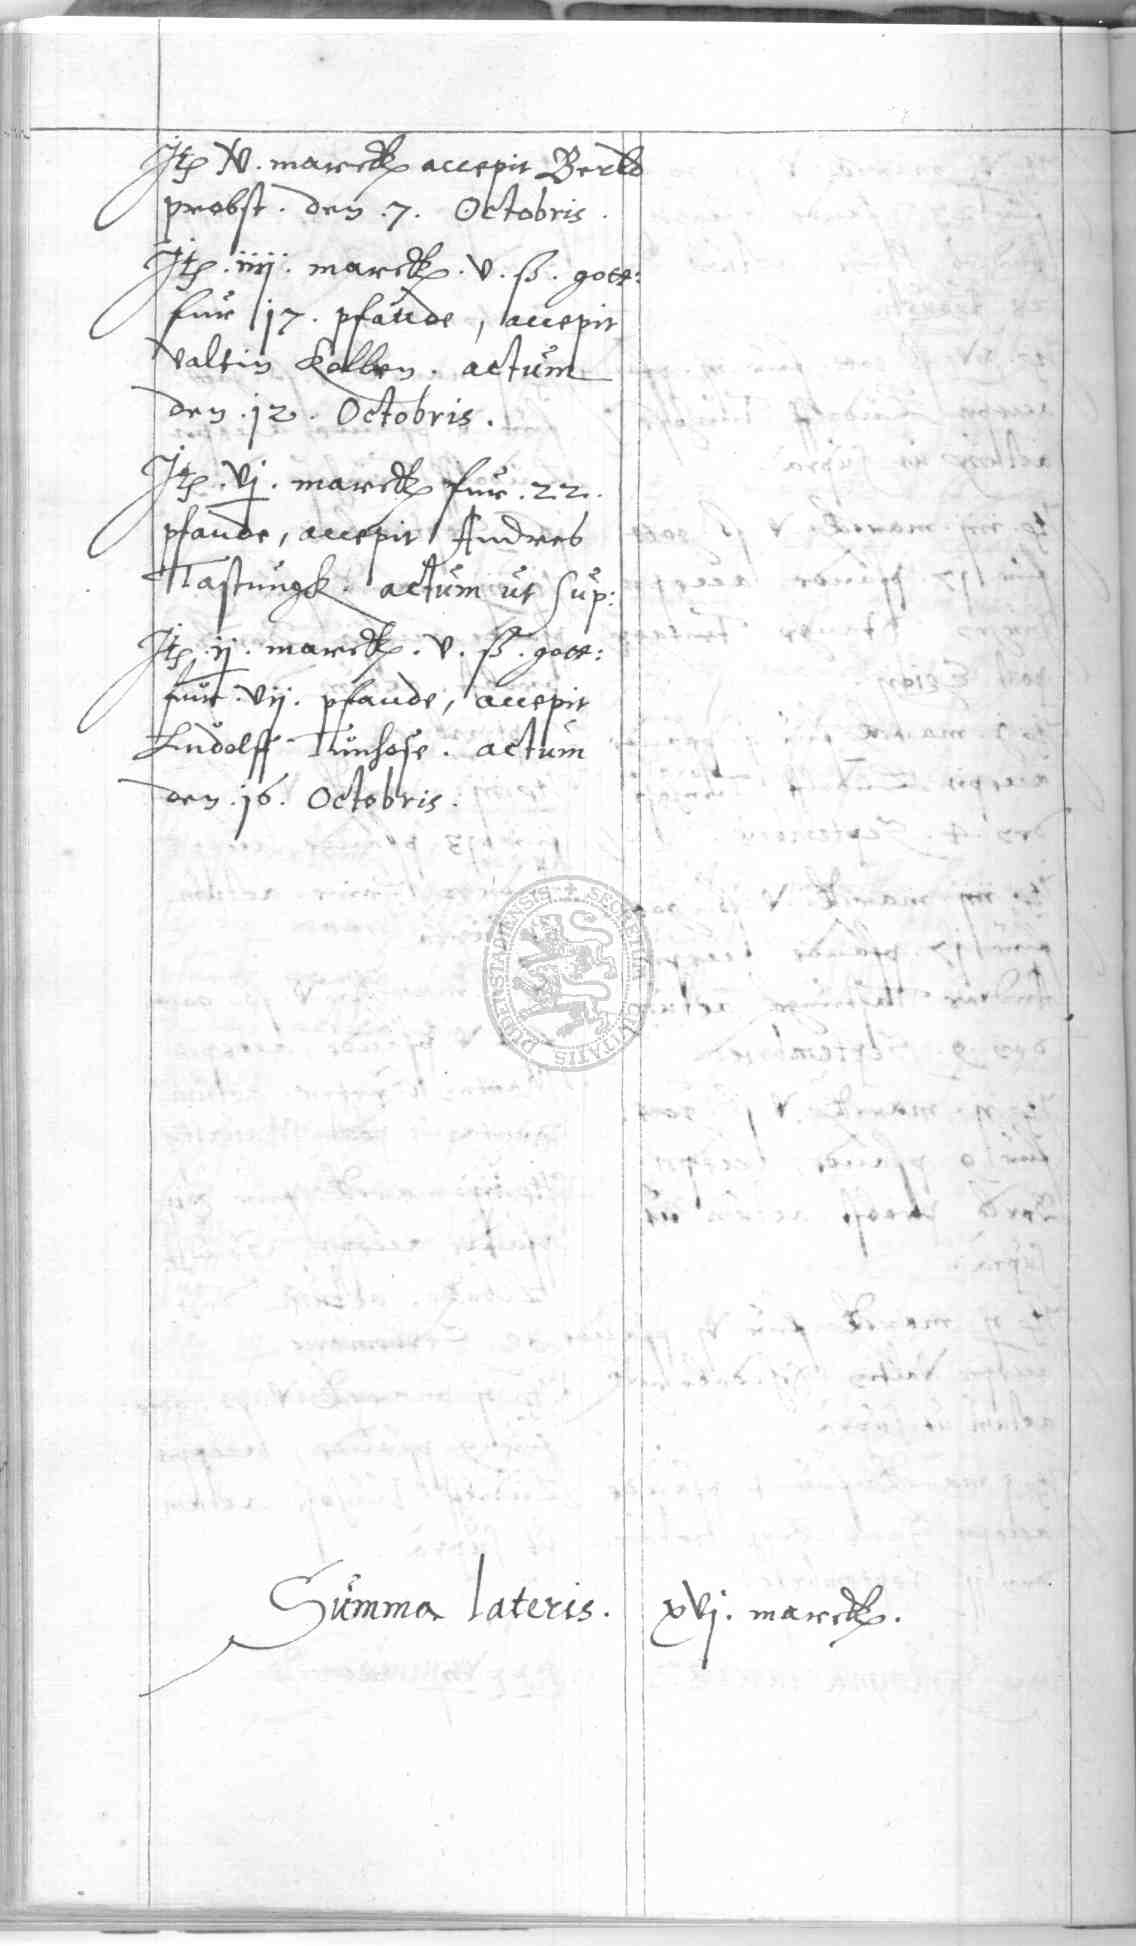 Jtē . marck accepit Berld
probst . den .7. Octobris .
Jtē .iiij. marck . v . ß . gott:
fur 17. pfande, accepit
Valtin Kolben . actum
den .12. Octobris .
Jtē .vj. marck fur .22.
pfande, accepit Andres
Tastungk . actum ut sup:
Jtē .ij. marck . v . ß . gott:
fur .vij. pfande, accepit
Ludolff Tunhose . actum
den .16. Octobris .
SECRETUM CIVITATIS DUDERSTADIENSIS
Summa lateris . xvj. marck .